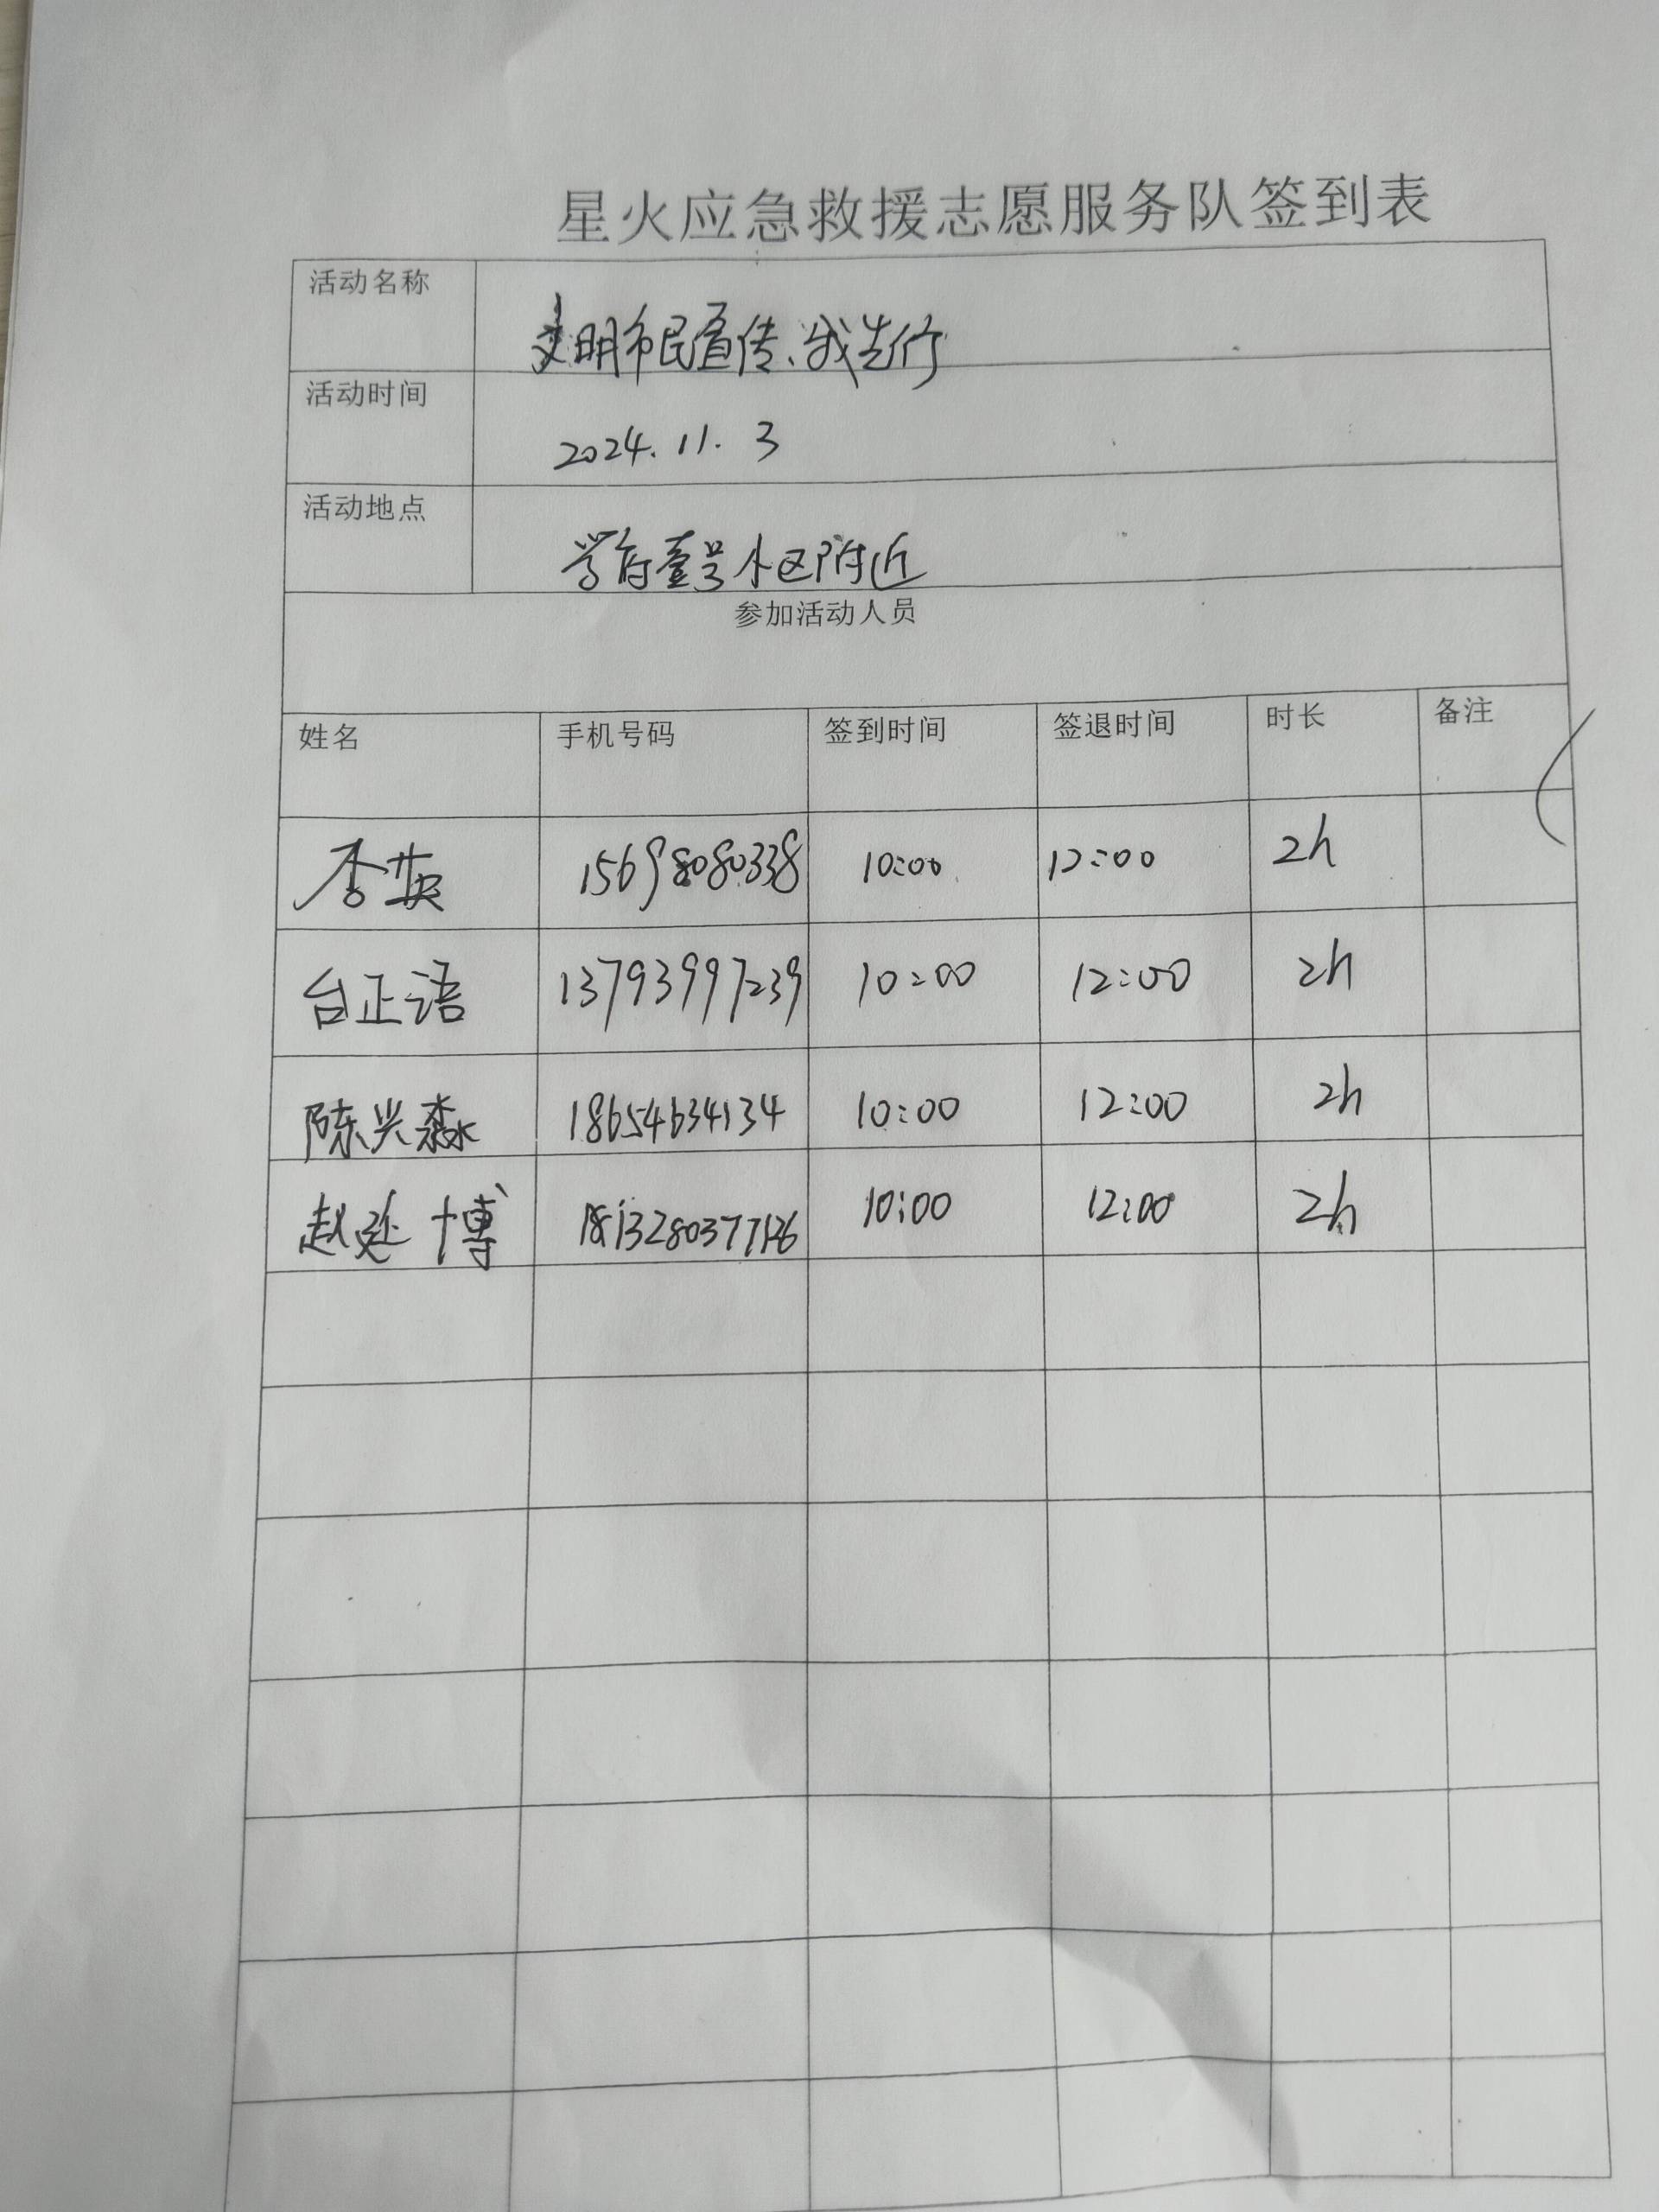 星火应急救援志愿服务队签到表
活动名称 文明市民宣传、我先行
活动时间 2024.11.3
活动地点 学府壹号小区附近
参加活动人员
姓名 手机号码 签到时间 签退时间 时长 备注
李英 15698080338 10:00 12:00 2h
台正语 13793997239 10:00 12:00 2h
陈兴淼 18654634134 10:00 12:00 2h
赵延博 10:00 12:00 2h